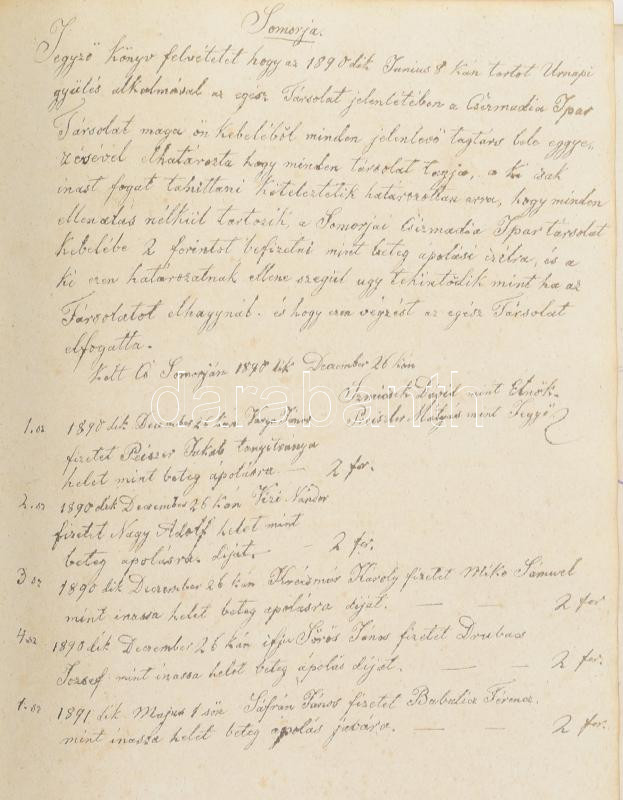 Somorja.
Jegyző könyv felvétetet hogy az 1890 dik Junius 8 kán tartot Urnapi
gyülés alkalmával az egész Társolat jelenlétében a Csizmadia Ipar
Társolat maga ön kebeléből minden jelenlevő tagtárs bele eggye,
zésével elhatározta hogy minden társolat tagja, a ki csak
inast fogat tanittani köteleztetik határozottan arra, hogy minden
ellenatás nélkül tartozik, a Somorjai Csizmadia Ipar társolat
kebelébe 2 forintot befizetni mint beteg ápolási czélra, és a
ki ezen határozatnak ellene szegül ugy tekintődik mint ha az
Társolatot elhagynál. és hogy ezen végzést az egész Társolat
elfogatta.
Kelt Cs Somorján 1890 dik December 26 kán
David mint Elnök
Mátyás mint Jegyő
1. sz 1890 dik December 26 kán Varga János
fizetet Peiszer Jakab tanyitványa
helet mint beteg ápolásra — 2 for.
2. sz 1890 dik December 26 kán Vizi Nándor
fizetet Nagy Adolf helet mint
beteg ápolásra diját. — 2 for.
3 sz 1890 dik December 26 kán Krecsmár Károly fizetet Miko Sámuel
mint inassa helet beteg ápolásra diját. — — 2 for
4 sz 1890 dik December 26 kán ifju Sörös János fizetet Drabacs
Jozsef mint inassa helet beteg ápolás diját. — — 2 for.
1. sz 1891 dik Majus 1 sön Sáfrán János fizetet Babulia Ferencz.
mint inassa helet beteg ápolás javára. — — 2 for.
darabanth